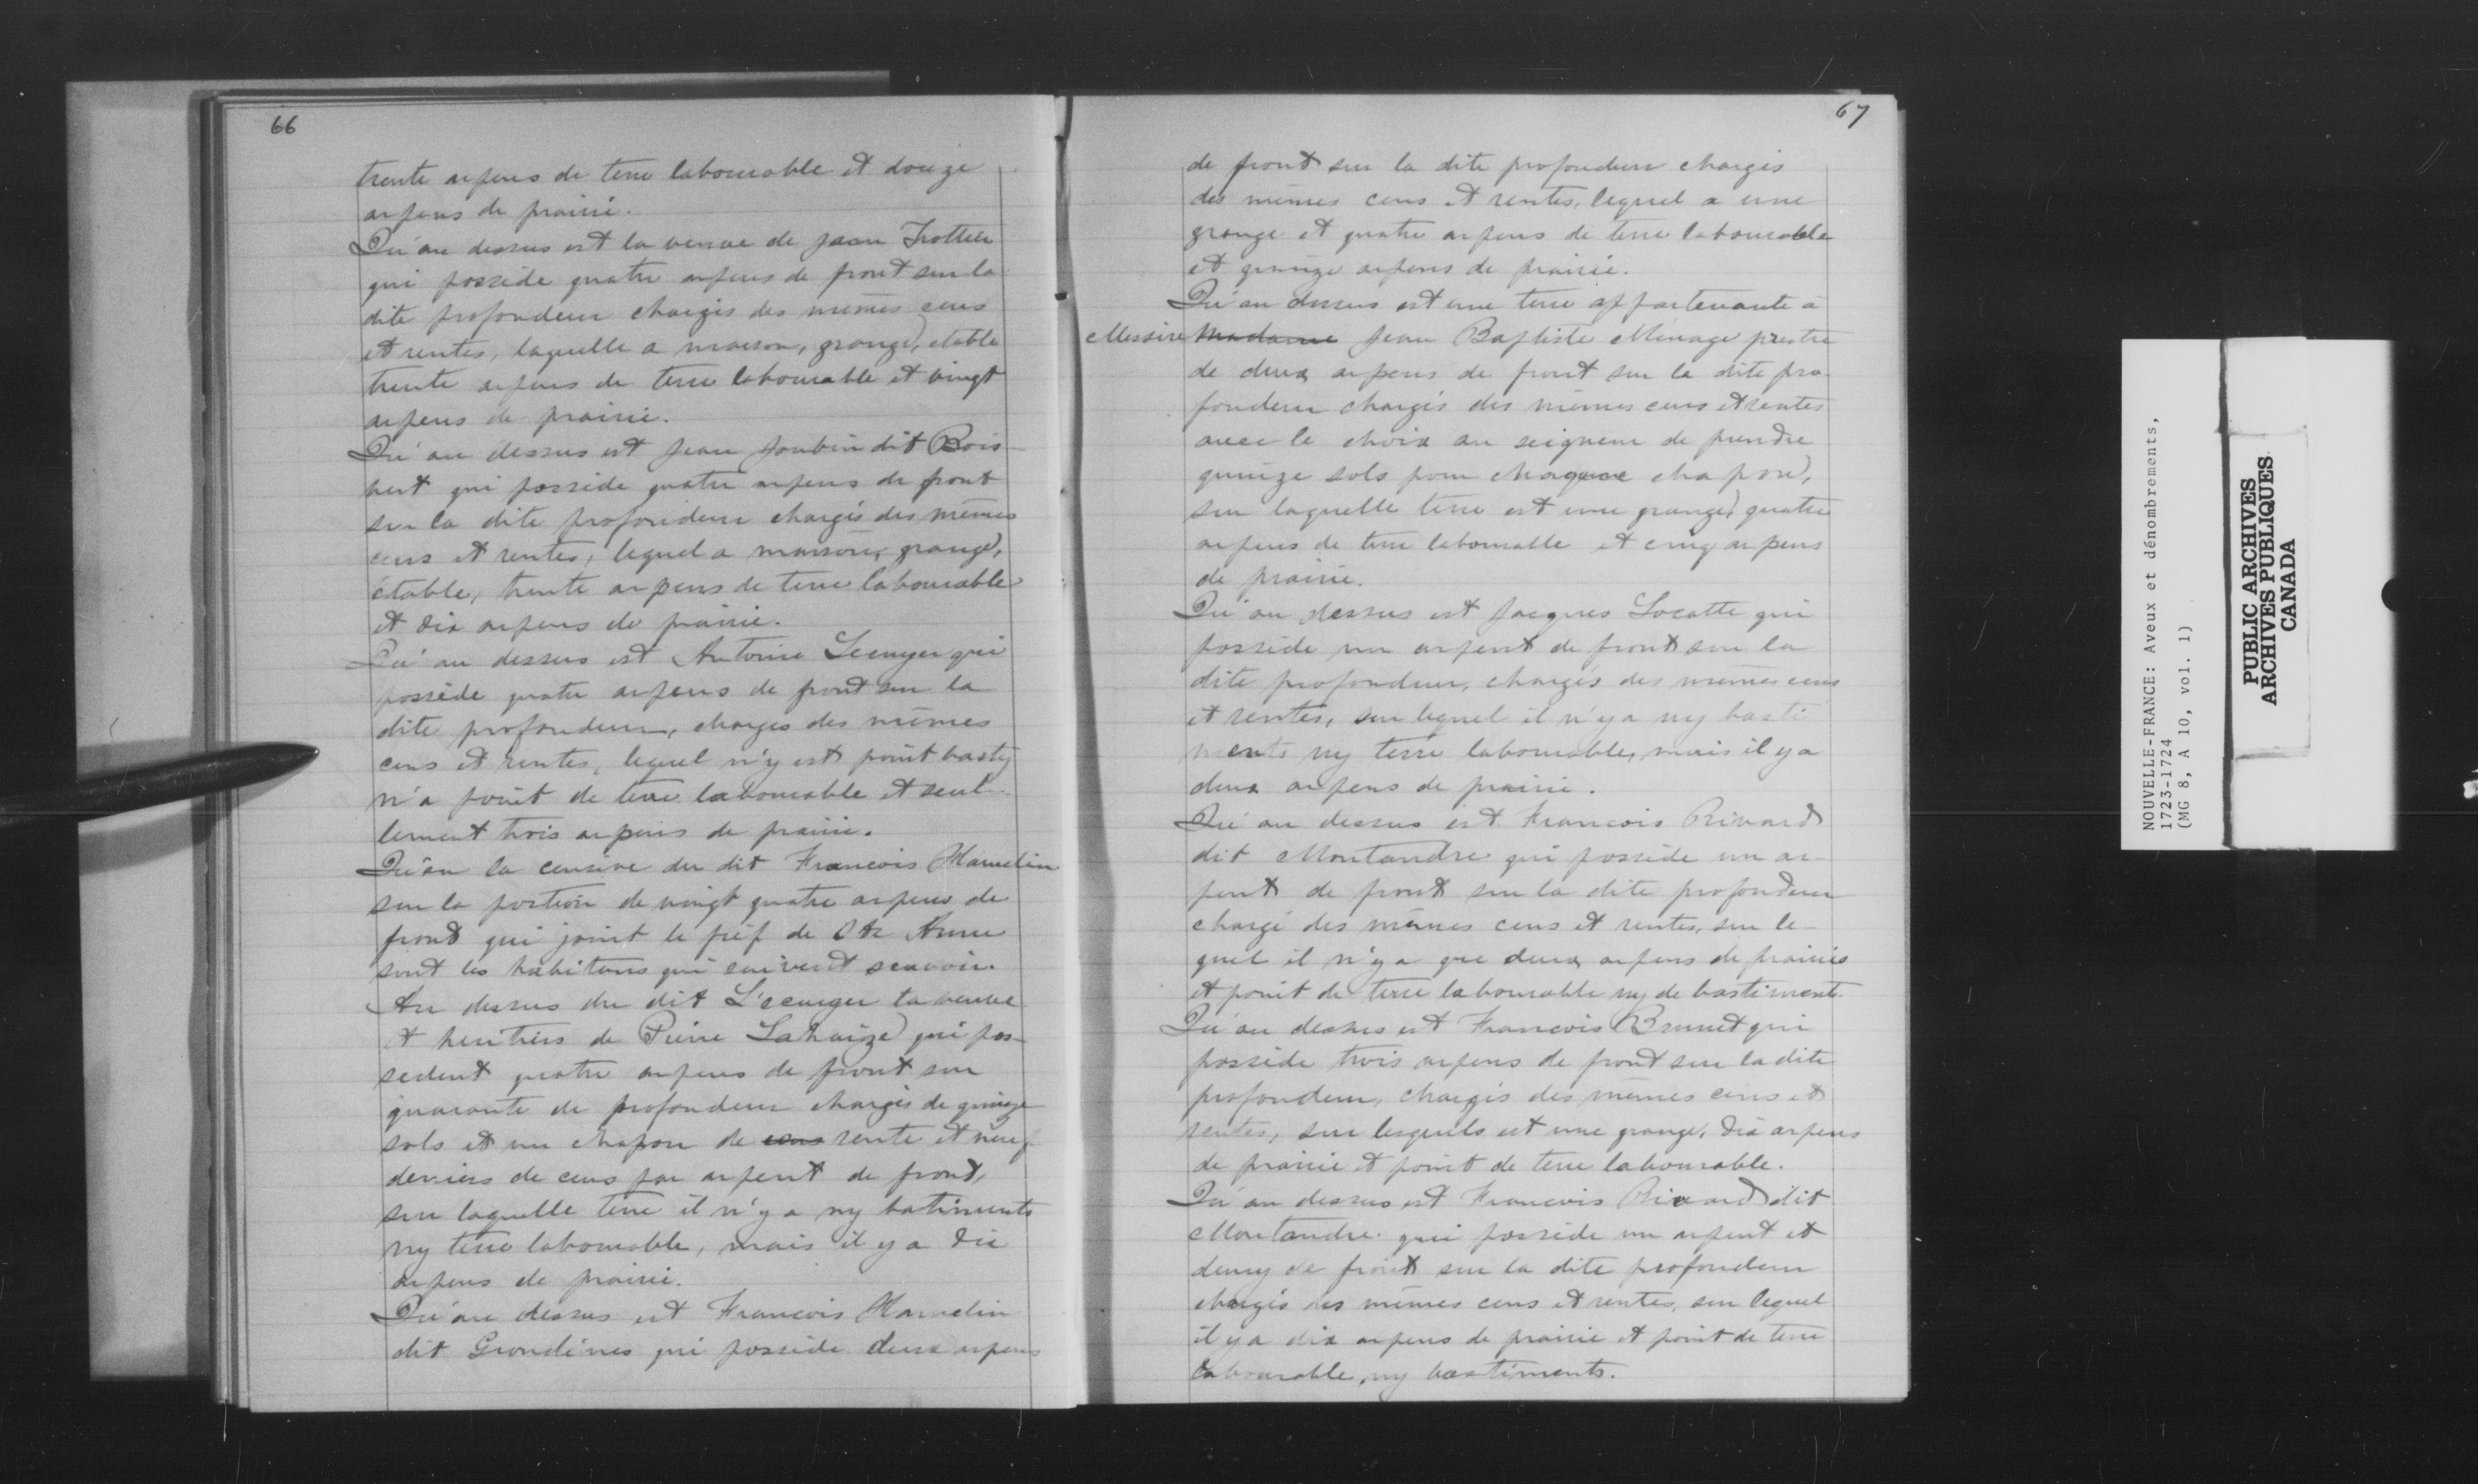 66
trente arpens de terre labourable et douze
arpens de prairie.
Qu'au dessus est la veuve de Jean Trottier
qui possède quatre arpens de front sur la
dite profondeur chargés des mêmes cens
et rentes, laquelle a maison, grange, etable
trente arpens de terre labourable et vingt
arpens de prairie.
Qu'au dessus est Jean Joubin dit Bois-
vert qui possède quatre arpens de front
sur la dite profondeur chargés des mêmes
cens et rentes, lequel a maison, grange,
étable, trente arpens de terre labourable
et dix arpens de prairie.
Qu'au dessus est Antoine Lecuyer qui
possède quatre arpens de front sur la
dite profondeur, charges des mêmes
cens et rentes, lequel n'y est point basty
n'a point de terre labourable et seul-
lement trois arpens de prairie.
Qu'en la censive du dit Francois Hamelin
sur la portion de vingt quatre arpens de
front qui joint le fief de Ste Anne
sont les habitans qui suivent scavoir.
Au dessus du dit L'ecuyer la veuve
et heritiers de Pierre Lahaize qui pos-
sedent quatre arpens de front sur
quarante de profondeur chargés de quinze
sols et un chapon de cens rente et neuf
deniers de cens par arpent de front,
sur laquelle terre il n'y a ny batiments
ny terre labourable, mais il y a dix
arpens de prairie.
Qu'au dessus est Francois Hamelin
dit Grondines qui possède deux arpens
67
de front sur la dite profondeur chargés
des mêmes cens et rentes, lequel a une
grange et quatre arpens de terre labourable
et quinze arpens de prairie.
Qu'au dessus est une terre appartenante à
Messire Madame Jean Baptiste Ménage prestre
de deux arpens de front sur la dite pro-
fondeur chargés des mêmes cens et rentes
avec le choix au seigneur de prendre
quinze sols pour chaque chapon,
sur laquelle terre est une grange, quatre
arpens de terre labourable et cinq arpens
de prairie.
Qu'au dessus est Jacques Locatte qui
possède un arpent de front sur la
dite profondeur, chargés des mêmes cens
et rentes, sur lequel il n'y a ny basti
ments ny terre labourable, mais il y a
deux arpens de prairie.
Qu'au dessus est Francois Rivard
dit Montandre qui possède un ar-
pent de front sur la dite profondeur
chargé des mêmes cens et rentes, sur le-
quel il n'y a que deux arpens de prairie
et point de terre labourable ny de bastiments.
Qu'au dessus est Francois Brunet qui
possède trois arpens de front sur la dite
profondeur, chargés des mêmes cens et
rentes, sur lesquels est une grange, dix arpens
de prairie et point de terre labourable.
Qu'au dessus est Francois Rivard dit
Montandre qui possède un arpent et
demy de front sur la dite profondeur
chargés des mêmes cens et rentes, sur lequel
il y a dix arpens de prairie et point de terre
labourable, ny bastiments.
NOUVELLE-FRANCE: Aveux et dénombrements,
1723-1724
(MG 8, A 10, vol. 1)
PUBLIC ARCHIVES
ARCHIVES PUBLIQUES
CANADA